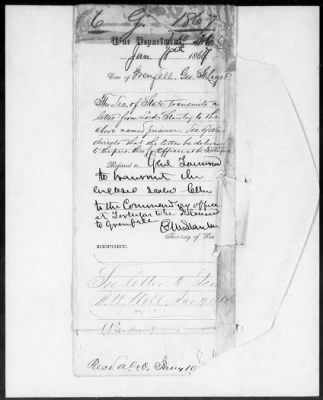 6 G. 1867
War Department
Jan 1867
Case of Grenfell, Geo. St. Leger
The Sec of State transmits a
letter from Lord Stanley to the
above named prisoner. Sec of War
directs that the letter be delivered
to the prisoner by Officer at
Referred to Genl Townsend
to transmit the
enclosed letter
to the Commanding officer
at Tortugas to be delivered
to Grenfell
Secretary of War
REPORT.
See letter to Genl
Hill, Jan 9
Recd A.G.O. Jany 10